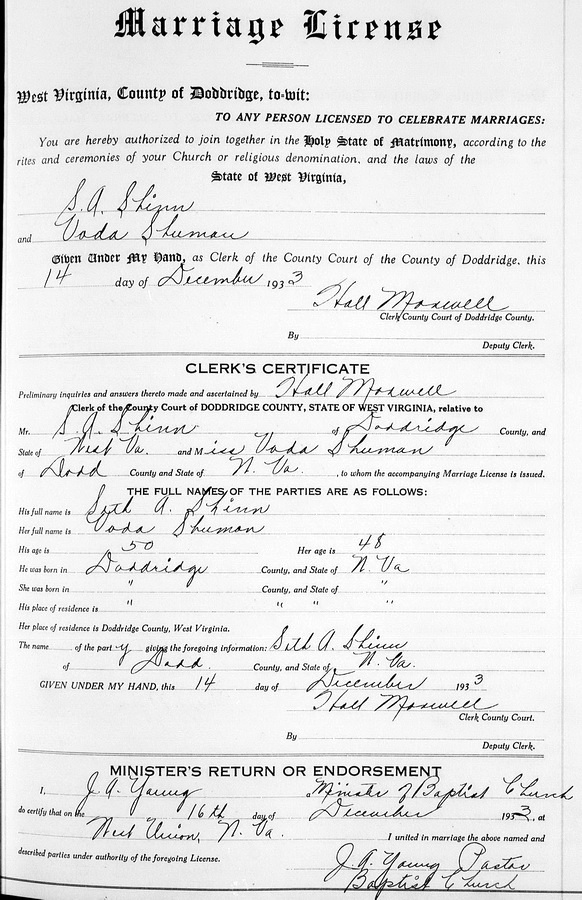 Marriage License
West Virginia, County of Doddridge, to-wit:
TO ANY PERSON LICENSED TO CELEBRATE MARRIAGES:
You are hereby authorized to join together in the Holy State of Matrimony, according to the
rites and ceremonies of your Church or religious denomination, and the laws of the
State of West Virginia,
S. A. Shinn
and Voda Shuman
Given Under My Hand, as Clerk of the County Court of the County of Doddridge, this
14 day of December 1933
Hall Maxwell
Clerk County Court of Doddridge County.
By
Deputy Clerk.
CLERK'S CERTIFICATE
Preliminary inquiries and answers thereto made and ascertained by Hall Maxwell
Clerk of the County Court of DODDRIDGE COUNTY, STATE OF WEST VIRGINIA, relative to
Mr. S. A. Shinn of Doddridge County, and
State of West Va. and Miss Voda Shuman
of Dodd County and State of W. Va. , to whom the accompanying Marriage License is issued.
THE FULL NAMES OF THE PARTIES ARE AS FOLLOWS:
His full name is Seth A. Shinn
Her full name is Voda Shuman
His age is 50 Her age is 48
He was born in Doddridge County, and State of W. Va
She was born in " County, and State of "
His place of residence is " " "
Her place of residence is Doddridge County, West Virginia.
The name of the party giving the foregoing information: Seth A. Shinn
of Dodd. County, and State of W. Va.
GIVEN UNDER MY HAND, this 14 day of December 1933
Hall Maxwell
Clerk County Court.
By
Deputy Clerk.
MINISTER'S RETURN OR ENDORSEMENT
I, J. A. Young a Minister of Baptist Church
do certify that on the 16th day of December 1933, at
West Union, W. Va. I united in marriage the above named and
described parties under authority of the foregoing License.
J. A. Young Pastor
Baptist Church